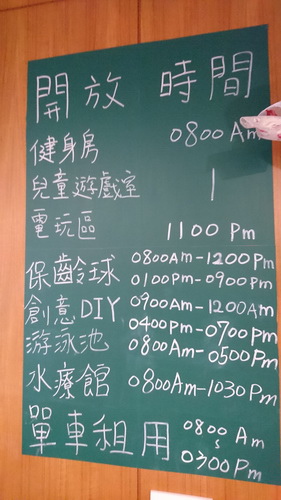 開放 時間
健身房 0800 Am
兒童遊戲室 |
電玩區 1100 Pm
保齡球 0800Am-1200Pm
0100Pm-0900Pm
創意DIY 0900Am-1200Am
0400Pm-0700Pm
游泳池 0800Am-0500Pm
水療館 0800Am-1030Pm
單車租用 0800 Am
S
0300 Pm